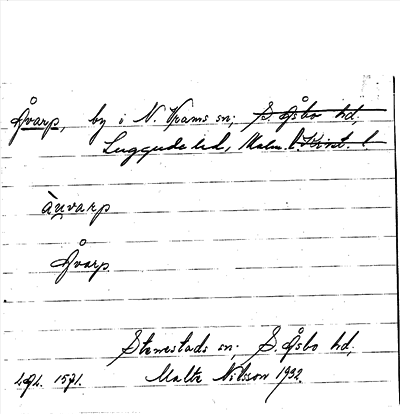 Åvarp, by i N. Vrams sn; S. Åsbo hd,
Luggude hd, Malm. l. Krist. l.
àu̯varp
Åvarp
Stenestads sn; S. Åsbo hd,
LGL. 1571. Malte Nilsson 1932.